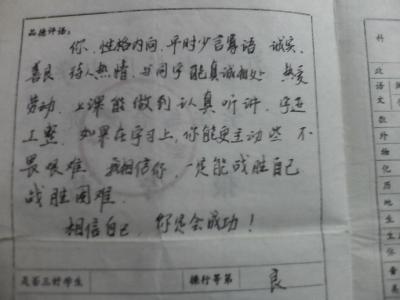 品德评语:
你,性格内向,平时少言寡语 诚实、
善良 待人热情,与同学能真诚相处 热爱
劳动,上课能做到认真听讲,字迹
工整,如果在学习上,你能更主动些 不
畏艰难 我相信你,一定能战胜自己
战胜困难.
相信自己,你定会成功!
是否三好学生
操行等第 良
科
政
语
文
数
外
物
化
历
地
生
生
体
音
美